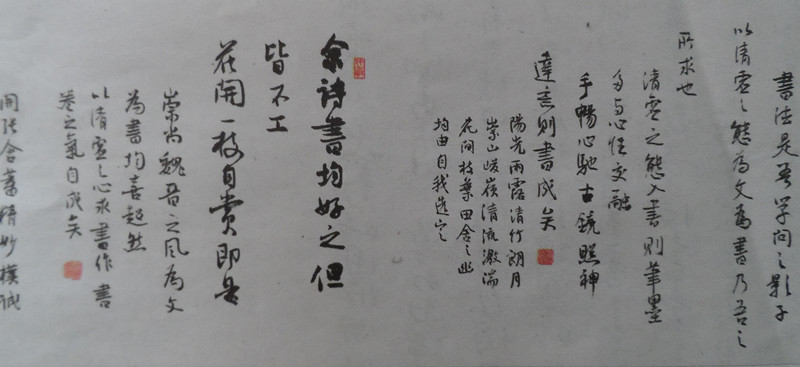 書法是吾學問之影子
以清雲之態為文為書乃吾之
所求也
清雲之態入書則筆墨
多与心性交融
手暢心馳古鏡照神
達意則書成矣
陽光雨露清竹朗月
崇山峻嶺清流激湍
花間枝葉田舍之
均由自我造之
余詩書均好之但
皆不工
花開一枝自賞即是
崇尚魏晋之風為文
為書均喜超然
以清雲之心求書作書
卷之氣自成矣
開張含蓄精妙樸